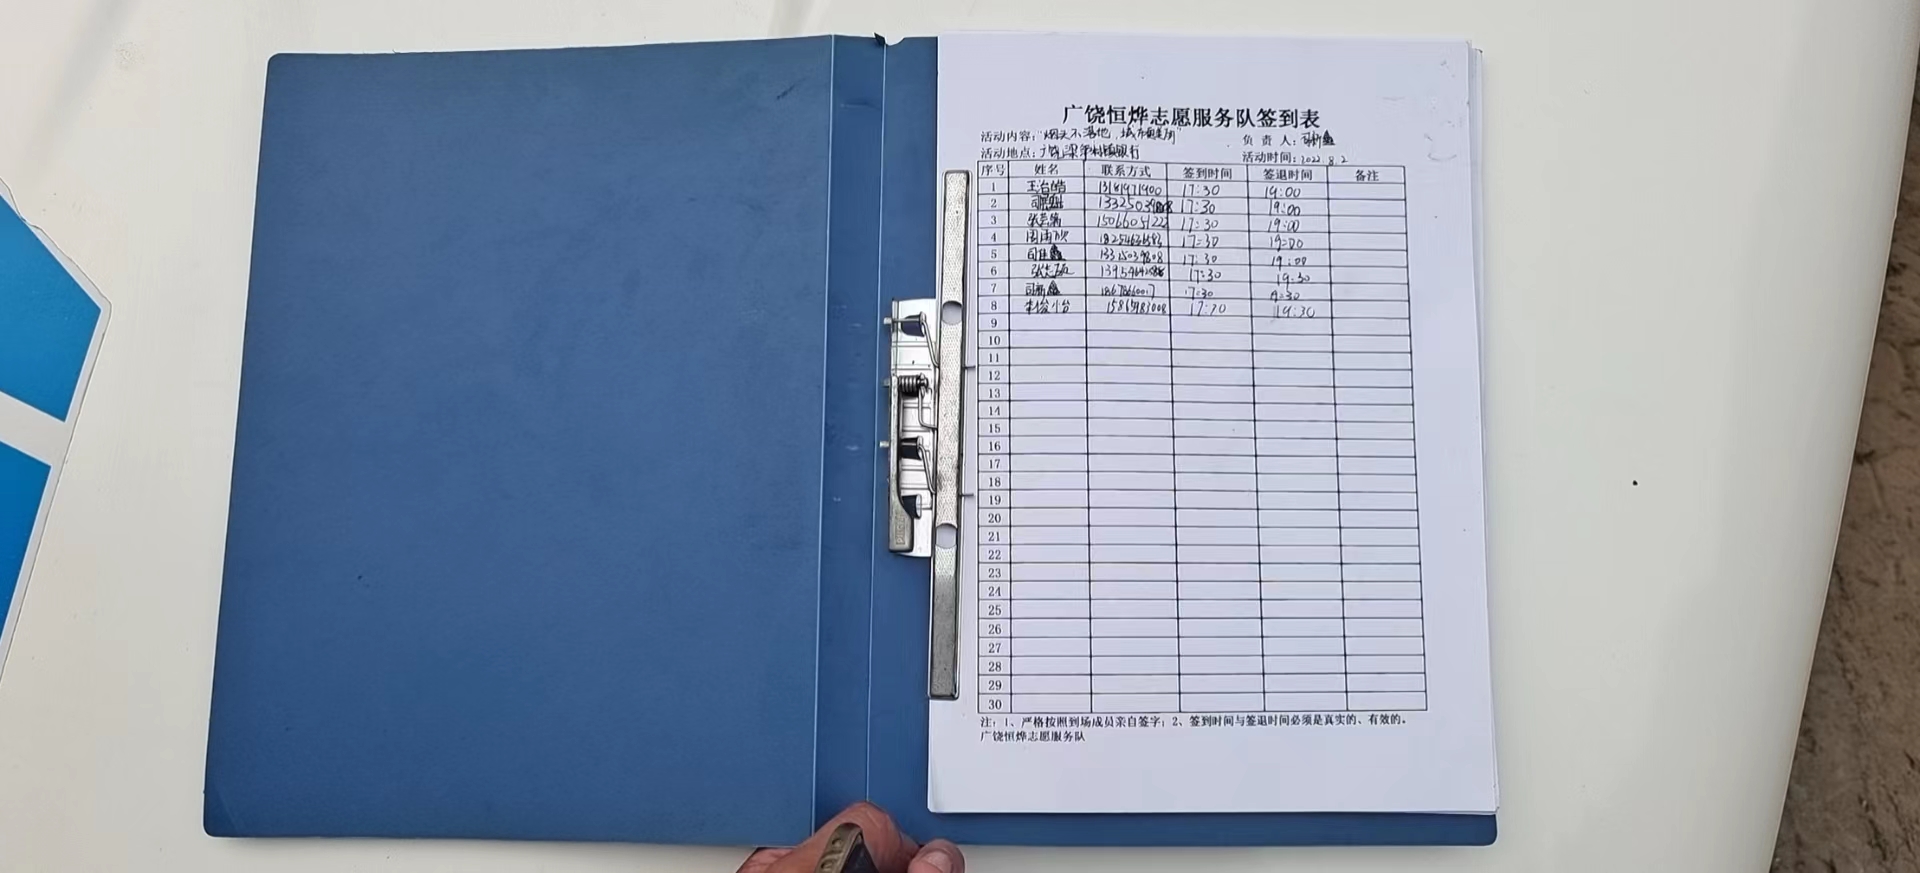 广饶恒烨志愿服务队签到表
活动内容："烟头不落地，城市更美丽" 负责人：司新鑫
活动地点：广饶梁邹村镇银行 活动时间：2022.8.2
序号 姓名 联系方式 签到时间 签退时间 备注
1 王治皓 13181971900 17:30 19:00
2 17:30 19:00
3 17:30 19:00
4 17:30 19:00
5 司佳鑫 13325039808 17:30 19:00
6 张志硕 17:30 19:30
7 司新鑫 17:30 19:30
8 17:30 19:30
9
10
11
12
13
14
15
16
17
18
19
20
21
22
23
24
25
26
27
28
29
30
注：1、严格按照到场成员亲自签字；2、签到时间与签退时间必须是真实的、有效的。
广饶恒烨志愿服务队